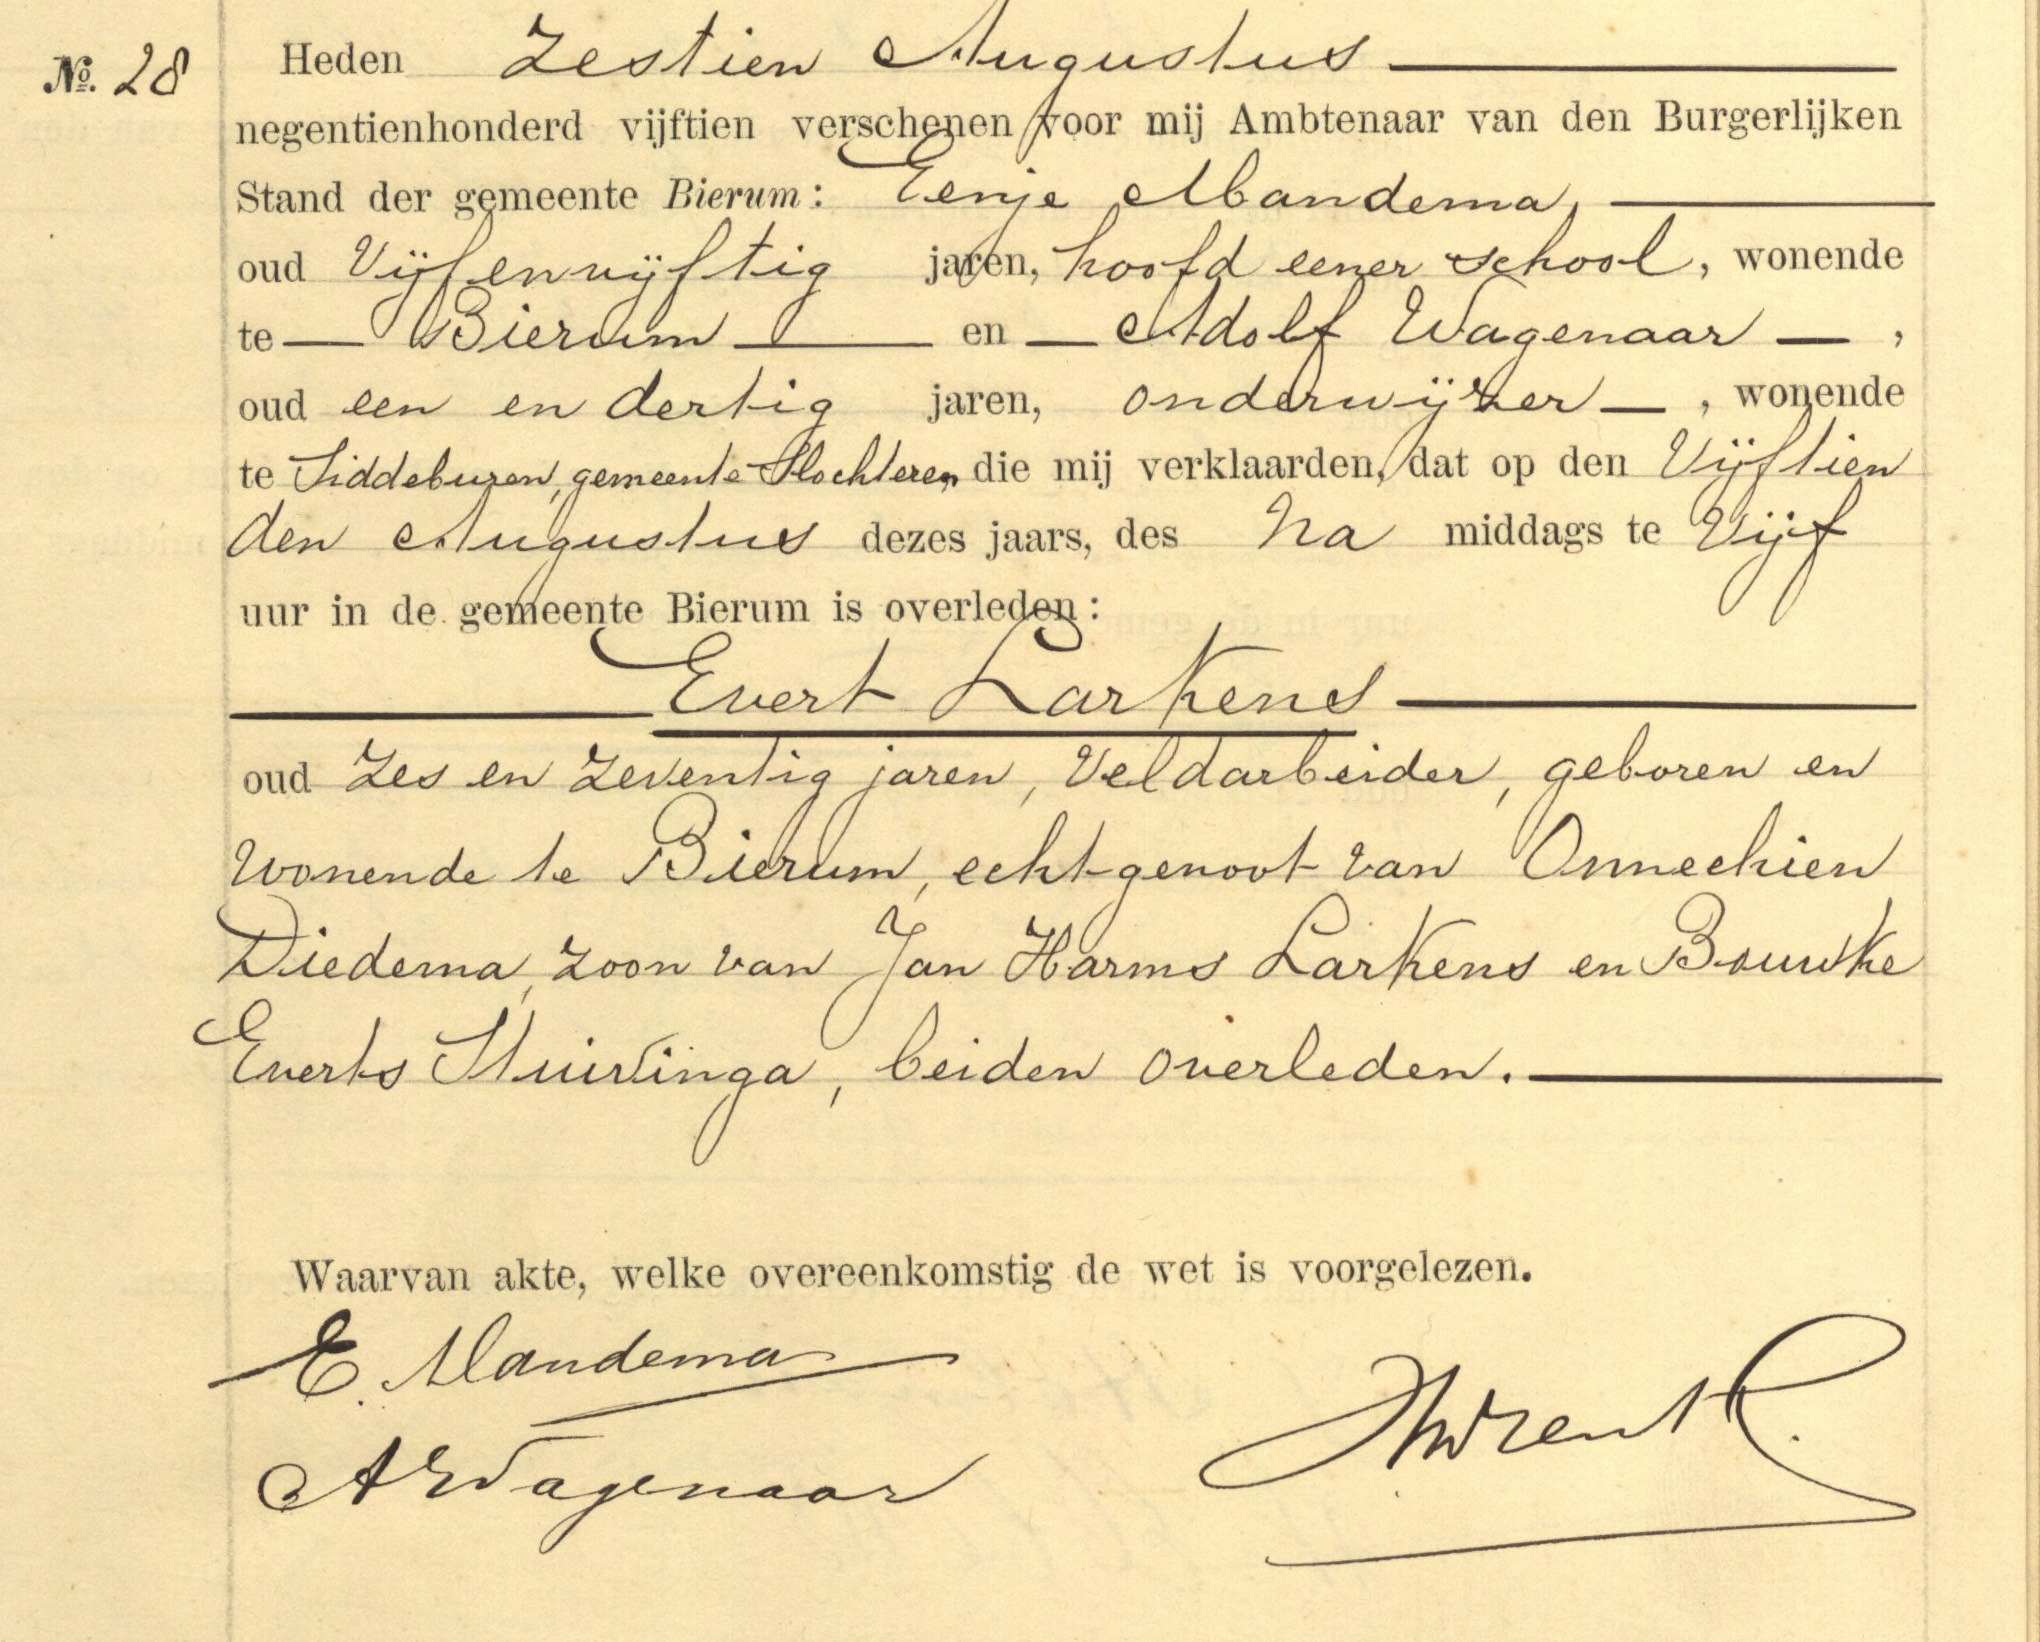 No. 28
Heden Zestien Augustus
negentienhonderd vijftien verschenen voor mij Ambtenaar van den Burgerlijken
Stand der gemeente Bierum: Eenje Mandema,
oud Vijfenvijftig jaren, hoofd eener school, wonende
te Bierum en Adolf Wagenaar,
oud een en dertig jaren, onderwijzer, wonende
te Siddeburen, gemeente Slochteren, die mij verklaarden, dat op den Vijftien
den Augustus dezes jaars, des Na middags te Vijf
uur in de gemeente Bierum is overleden:
Evert Larkens
oud Zes en Zeventig jaren, Veldarbeider, geboren en
Wonende te Bierum, echtgenoot van Onnechien
Diedema, zoon van Jan Harms Larkens en Bouwke
Everts Stuivinga, beiden overleden.
Waarvan akte, welke overeenkomstig de wet is voorgelezen.
E. Mandema
A Wagenaar